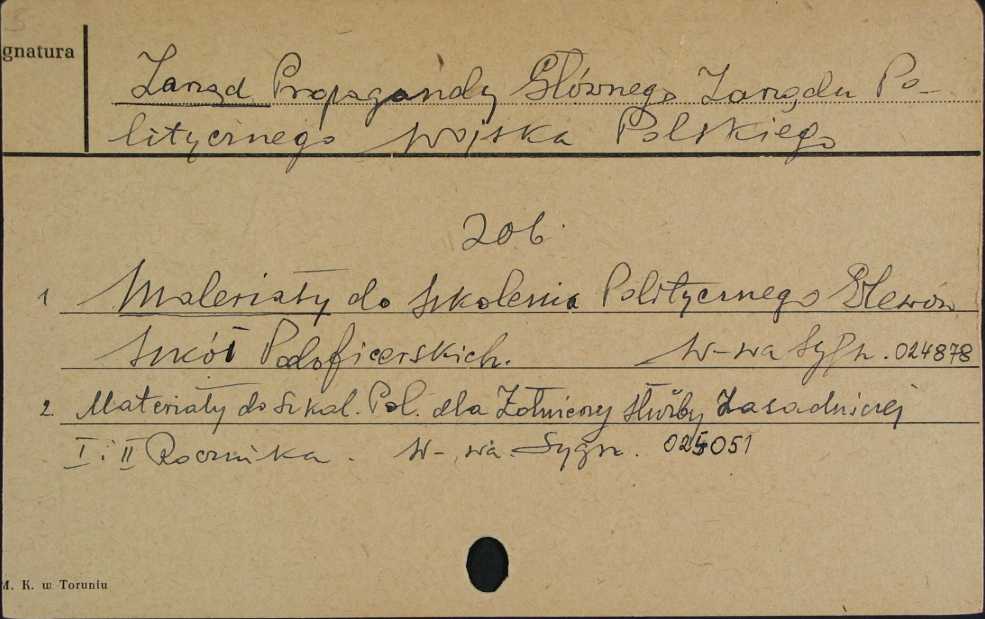 gnatura
Zarząd Propagandy Głównego Zarządu Po-
litycznego Wojska Polskiego
zob.
1 Materiały do szkolenia Politycznego Elewów
Szkół Podoficerskich. W-wa Sygn. 024878
2. Materiały do Szkol. Pol. dla Żołnierzy służby Zasadniczej
I i II Rocznika. W-wa. Sygn. 025051
M. K. w Toruniu